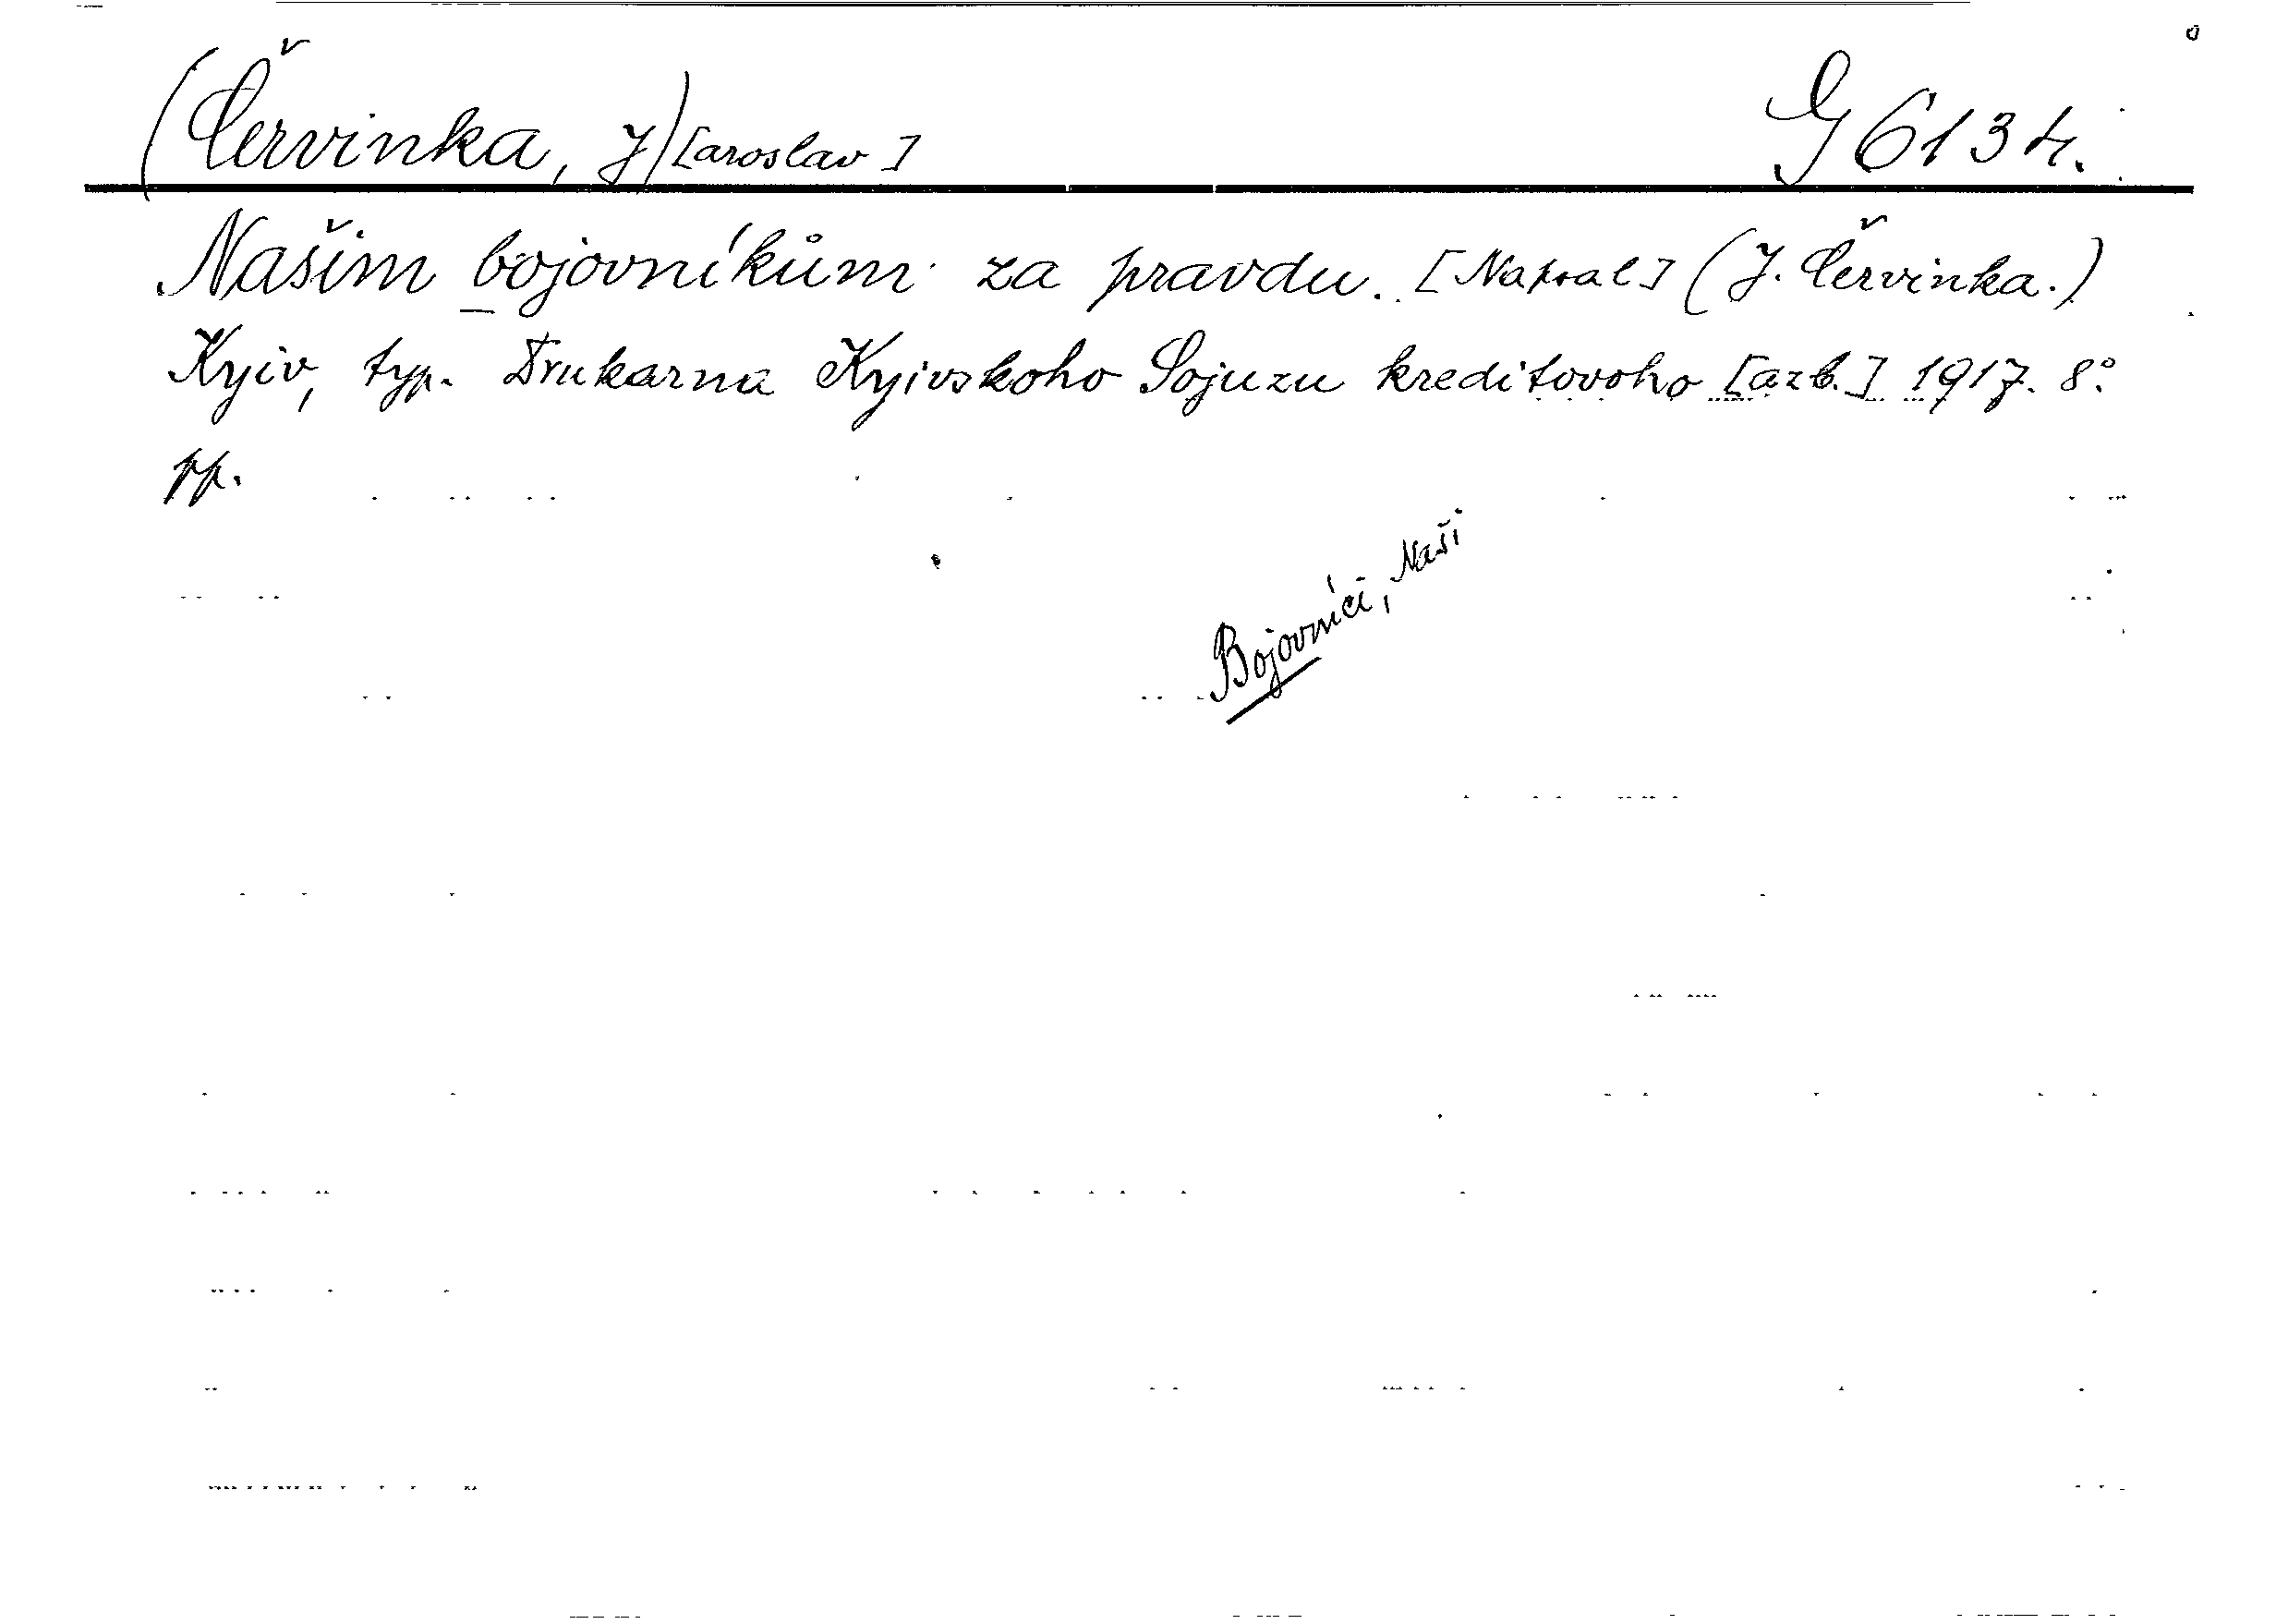 (Červinka, J)[aroslav] G 6134.
Našim bojovníkům za pravdu. [Napsal] (J. Červinka.)
Kyiv, typ. Drukarna Kyivskoho Sojuzu kreditovoho [azb.] 1917. 8°.
pp.
Bojovníci, Naši